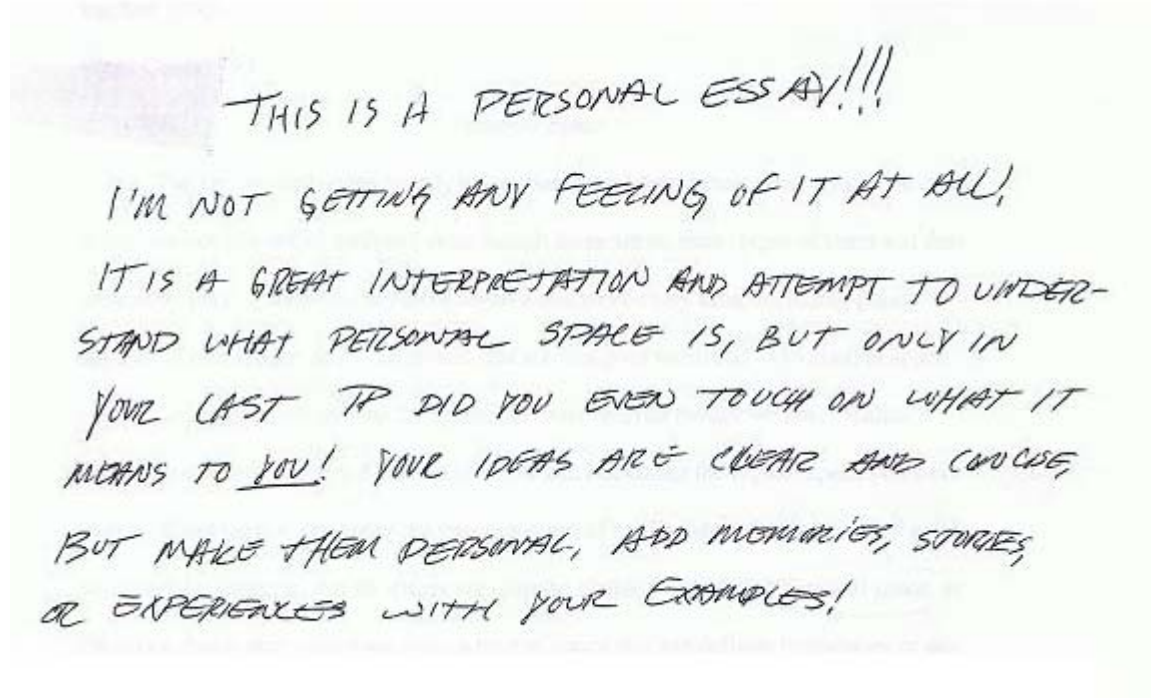 THIS IS A PERSONAL ESSAY!!!
I'M NOT GETTING ANY FEELING OF IT AT ALL!
IT IS A GREAT INTERPRETATION AND ATTEMPT TO UNDER-
STAND WHAT PERSONAL SPACE IS, BUT ONLY IN
YOUR LAST DID YOU EVEN TOUCH ON WHAT IT
MEANS TO YOU! YOUR IDEAS ARE CLEAR AND CONCISE,
BUT MAKE THEM PERSONAL, ADD MEMORIES, STORIES,
OR EXPERIENCES WITH YOUR EXAMPLES!